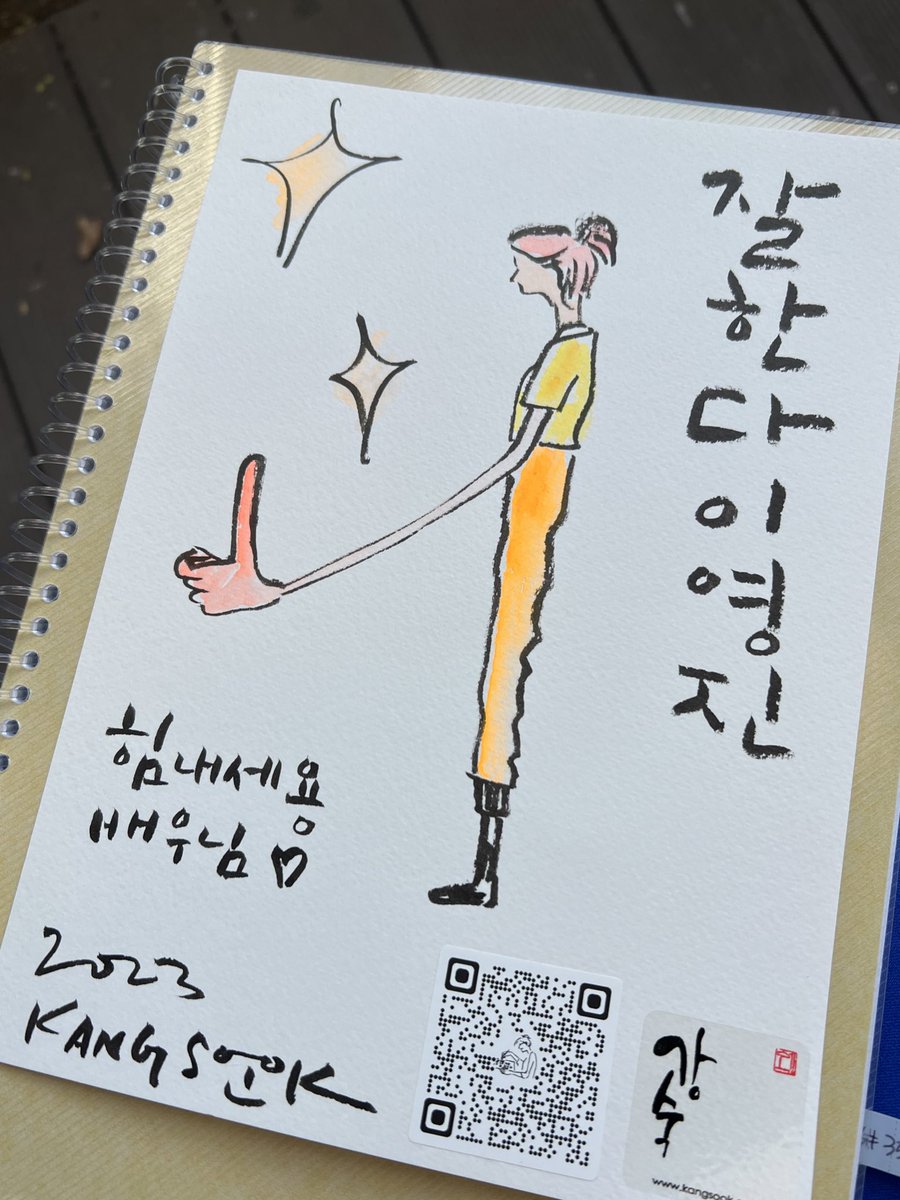 잘한다이영진
힘내세용
배우님♡
2023
KANG SOOK
강숙
www.kangsook
#35